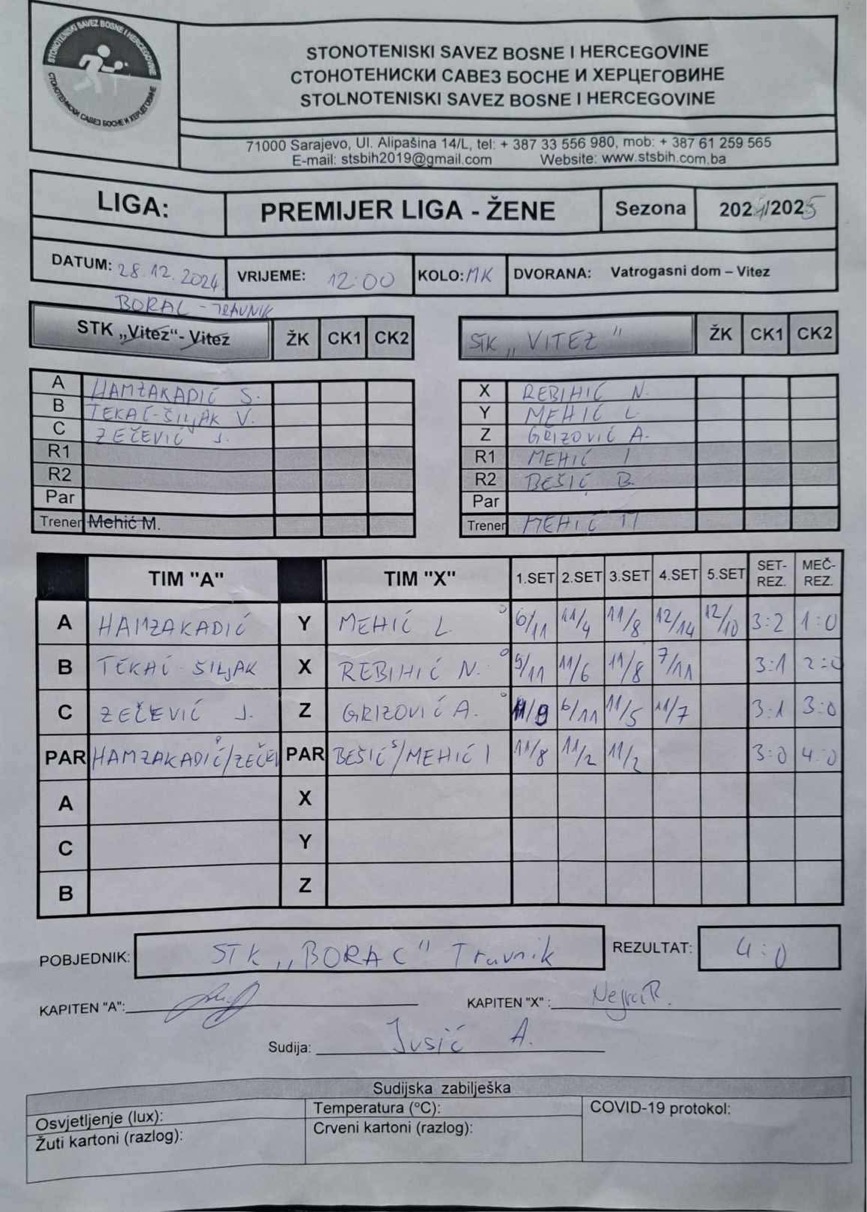 STONOTENISKI SAVEZ BOSNE I HERCEGOVINE
СТОНОТЕНИСКИ САВЕЗ БОСНЕ И ХЕРЦЕГОВИНЕ
STONOTENISKI SAVEZ BOSNE I HERCEGOVINE
СТОНОТЕНИСКИ САВЕЗ БОСНЕ И ХЕРЦЕГОВИНЕ
STOLNOTENISKI SAVEZ BOSNE I HERCEGOVINE
71000 Sarajevo, Ul. Alipašina 14/L, tel: + 387 33 556 980, mob: + 387 61 259 565
E-mail: stsbih2019@gmail.com Website: www.stsbih.com.ba
LIGA: PREMIJER LIGA - ŽENE Sezona 2024/2025
DATUM: 28.12.2024 VRIJEME: 12:00 KOLO: MK DVORANA: Vatrogasni dom – Vitez
BORAC - TRAVNIK
STK „Vitez“- Vitez ŽK CK1 CK2 STK „VITEZ" ŽK CK1 CK2
A HAMZAKADIĆ S. X REBIHIĆ N.
B TEKAĆ-ŠILJAK V. Y MEHIĆ L
C ZEČEVIĆ J. Z GRIZOVIĆ A.
R1 R1 MEHIĆ I
R2 R2 BEŠIĆ B.
Par Par
Trener Mehić M. Trener MEHIĆ M
TIM "A" TIM "X" 1.SET 2.SET 3.SET 4.SET 5.SET SET-REZ. MEČ-REZ.
A HAMZAKADIĆ Y MEHIĆ L. 6/11 11/4 11/8 12/14 12/10 3:2 1:0
B TEKAĆ-SILJAK X REBIHIĆ N. 9/11 11/6 11/8 7/11 3:1 2:0
C ZEČEVIĆ J. Z GRIZOVIĆ A. 11/9 6/11 11/5 11/7 3:1 3:0
PAR HAMZAKADIĆ/ZEČEV PAR BEŠIĆ/MEHIĆ I 11/8 11/2 11/2 3:0 4:0
A X
C Y
B Z
POBJEDNIK: STK „BORAC" Travnik REZULTAT: 4:0
KAPITEN "A": KAPITEN "X":
Sudija: Jusić A.
Sudijska zabilješka
Osvjetljenje (lux): Temperatura (°C): COVID-19 protokol:
Žuti kartoni (razlog): Crveni kartoni (razlog):